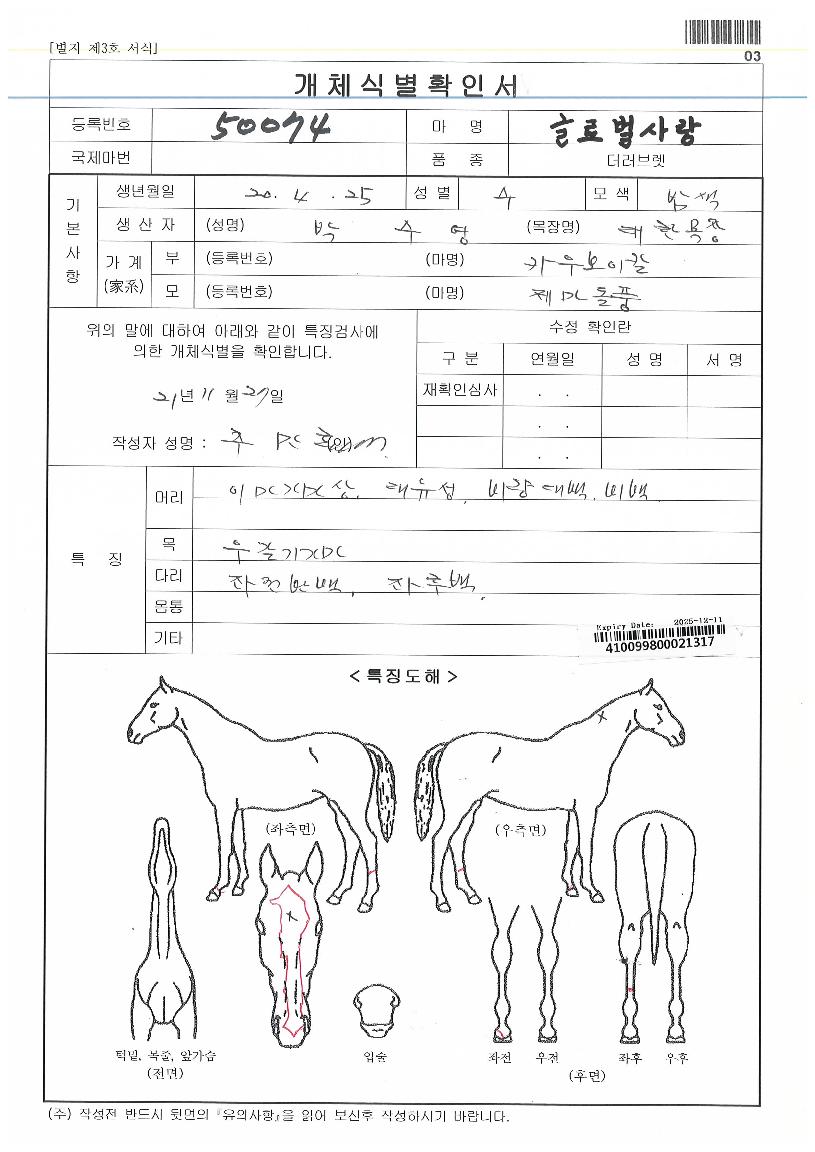 [별지 제3호 서식]
03
개체식별확인서
등록번호 50074 마 명 글로벌사랑
국제마번 품 종 더러브렛
기본사항
생년월일 20. 4. 25 성별 수 모색 밤색
생산자 (성명) 박수영 (목장명) 대한목장
가계(家系) 부 (등록번호) (마명) 카우보이칼
모 (등록번호) (마명) 제미돌풍
위의 말에 대하여 아래와 같이 특징검사에
의한 개체식별을 확인합니다.
21년 11월 27일
작성자 성명 :
수정 확인란
구분 연월일 성명 서명
재확인심사 . .
. .
. .
특징
머리 유성, 비량대백, 비백
목
다리 좌전 백, 좌후백.
몸통
기타
Expiry Date: 2025-12-11
410099800021317
<특징도해>
(좌측면) (우측면)
턱밑, 목줄, 앞가슴
(전면)
입술
좌전 우전 좌후 우후
(후면)
(주) 작성전 반드시 뒷면의 『유의사항』을 읽어 보신후 작성하시기 바랍니다.